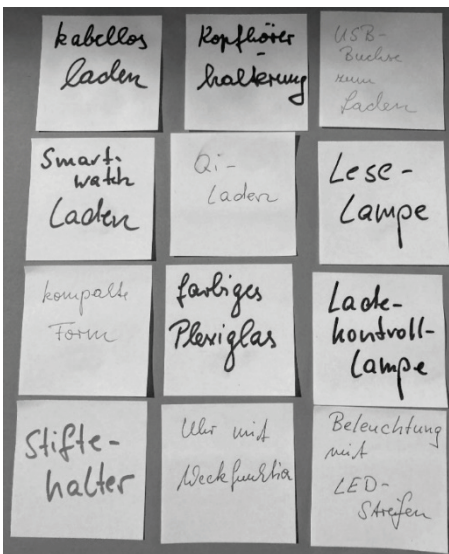 kabellos
laden
Kopfhörer
-
halterung
USB-
Buchse
zum
Laden
Smart-
watch
Laden
Qi-
Laden
Lese-
Lampe
kompakte
Form
farbiges
Plexiglas
Lade-
kontroll-
lampe
Stifte-
halter
Uhr mit
Weckfunktion
Beleuchtung
mit
LED-
Streifen